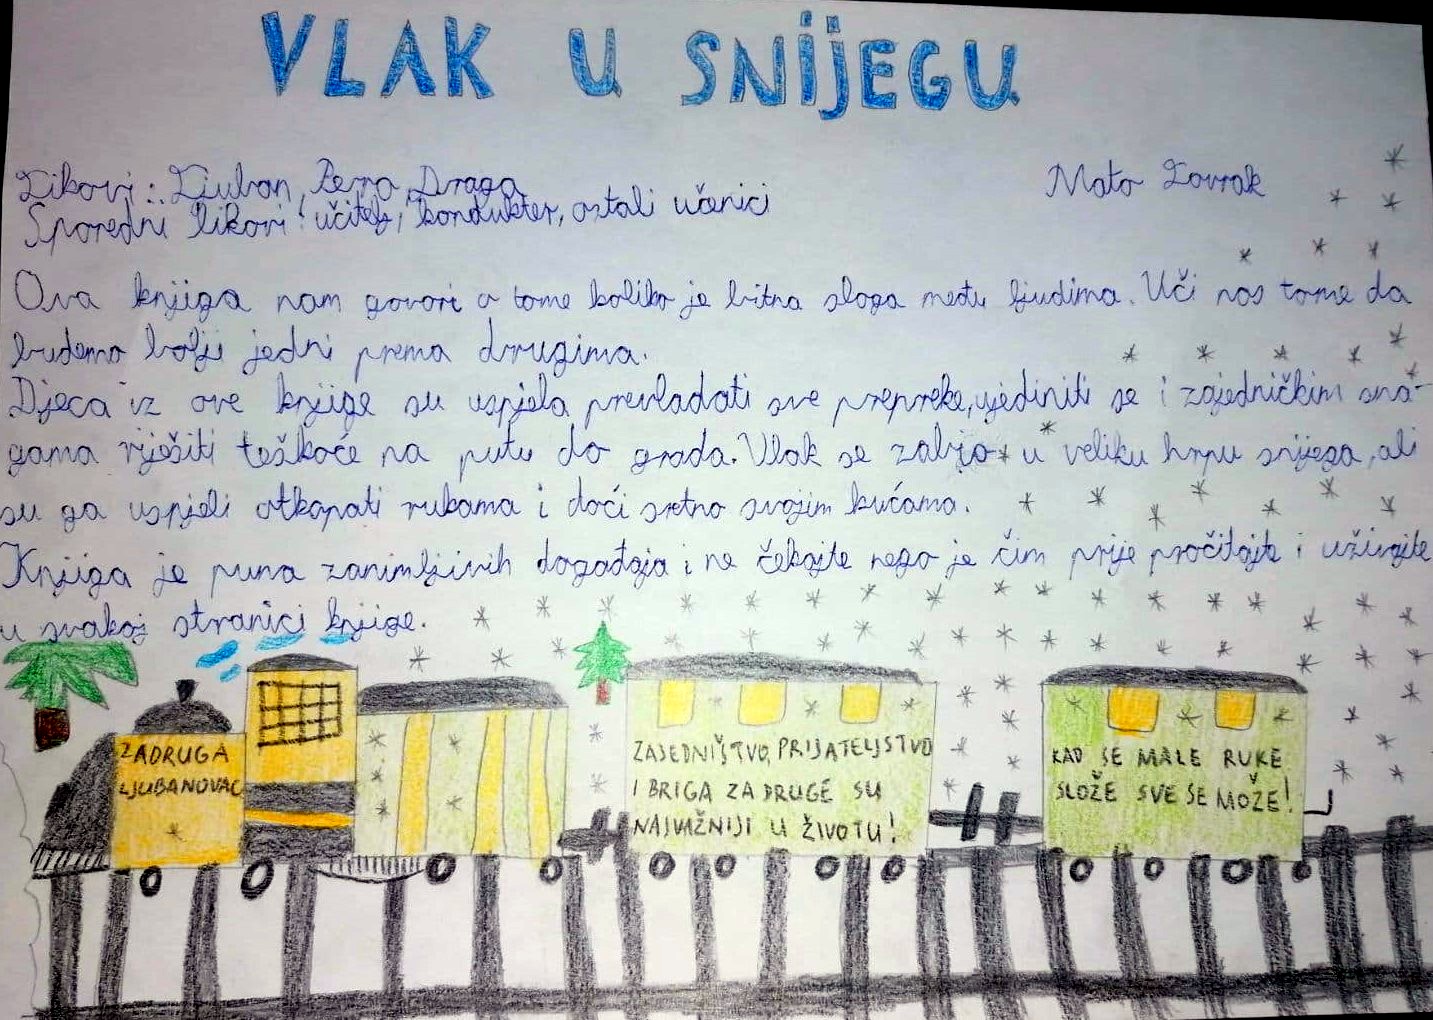 VLAK U SNIJEGU
Likovi: Ljuban, Pero, Draga
Mato Lovrak
Sporedni likovi: učitelj, kondukter, ostali učenici
Ova knjiga nam govori o tome koliko je bitna sloga među ljudima. Uči nas tome da
budemo bolji jedni prema drugima.
Djeca iz ove knjige su uspjela prevladati sve prepreke, ujediniti se i zajedničkim sna-
gama riješiti teškoće na putu do grada. Vlak se zabio u veliku hrpu snijega, ali
su ga uspjeli otkopati rukama i doći sretno svojim kućama.
Knjiga je puna zanimljivih događaja i ne čekajte nego je čim prije pročitajte i uživajte
u svakoj stranici knjige.
ZADRUGA
LJUBANOVAC
ZAJEDNIŠTVO, PRIJATELJSTVO
I BRIGA ZA DRUGE SU
NAJVAŽNIJI U ŽIVOTU!
KAD SE MALE RUKE
SLOŽE SVE SE MOŽE!